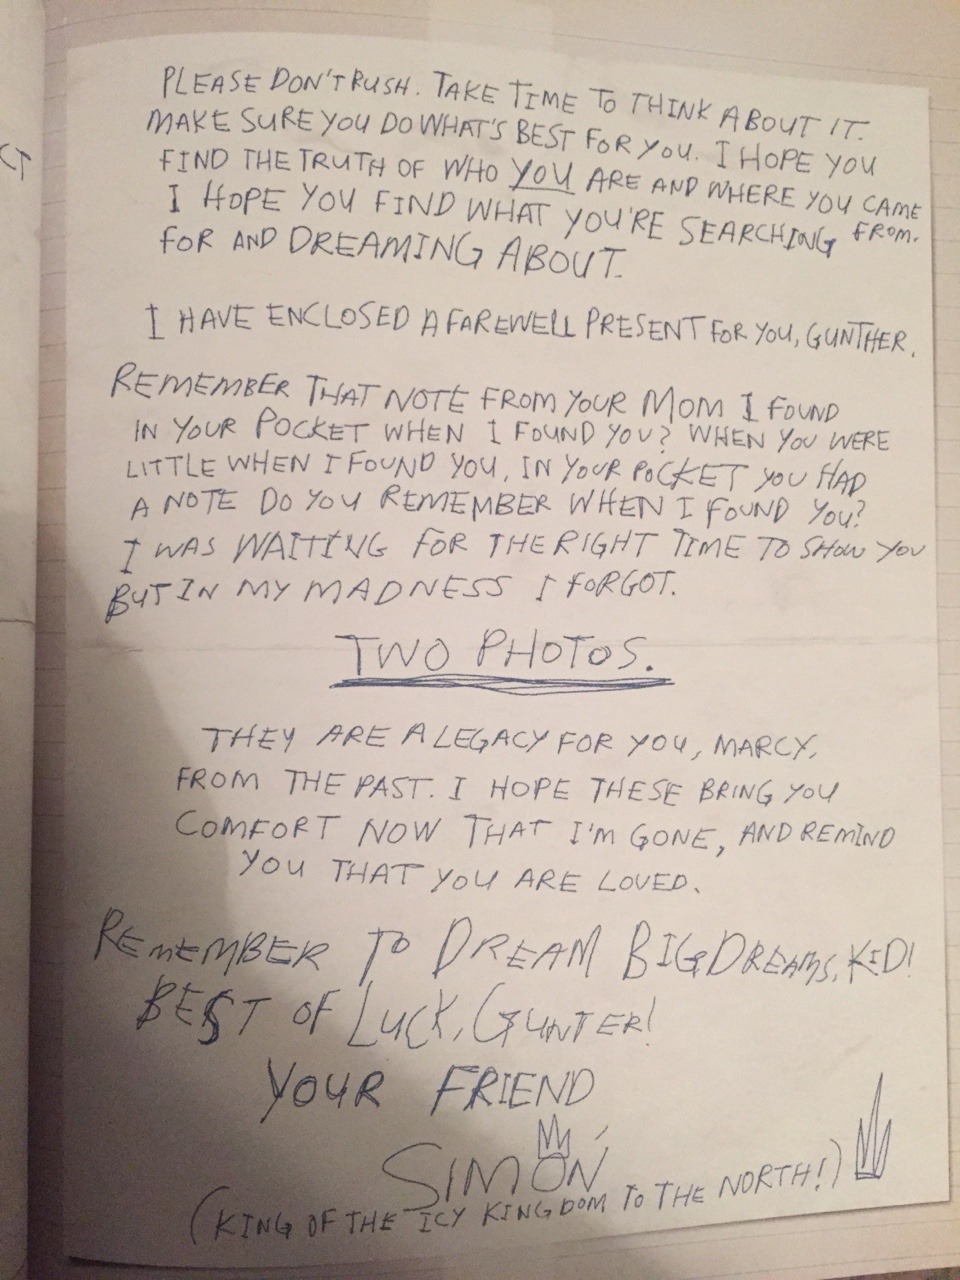 CT
PLEASE DON'T RUSH. TAKE TIME TO THINK ABOUT IT.
MAKE SURE YOU DO WHAT'S BEST FOR YOU. I HOPE YOU
FIND THE TRUTH OF WHO YOU ARE AND WHERE YOU CAME FROM.
I HOPE YOU FIND WHAT YOU'RE SEARCHING
FOR AND DREAMING ABOUT.
I HAVE ENCLOSED A FAREWELL PRESENT FOR YOU, GUNTHER.
REMEMBER THAT NOTE FROM YOUR MOM I FOUND
IN YOUR POCKET WHEN I FOUND YOU? WHEN YOU WERE
LITTLE WHEN I FOUND YOU, IN YOUR POCKET YOU HAD
A NOTE DO YOU REMEMBER WHEN I FOUND YOU?
I WAS WAITING FOR THE RIGHT TIME TO SHOW YOU
BUT IN MY MADNESS I FORGOT.
TWO PHOTOS.
THEY ARE A LEGACY FOR YOU, MARCY,
FROM THE PAST. I HOPE THESE BRING YOU
COMFORT NOW THAT I'M GONE, AND REMIND
YOU THAT YOU ARE LOVED.
REMEMBER TO DREAM BIG DREAMS, KID!
BEST OF LUCK, GUNTER!
YOUR FRIEND
SIMON
(KING OF THE ICY KINGDOM TO THE NORTH!)